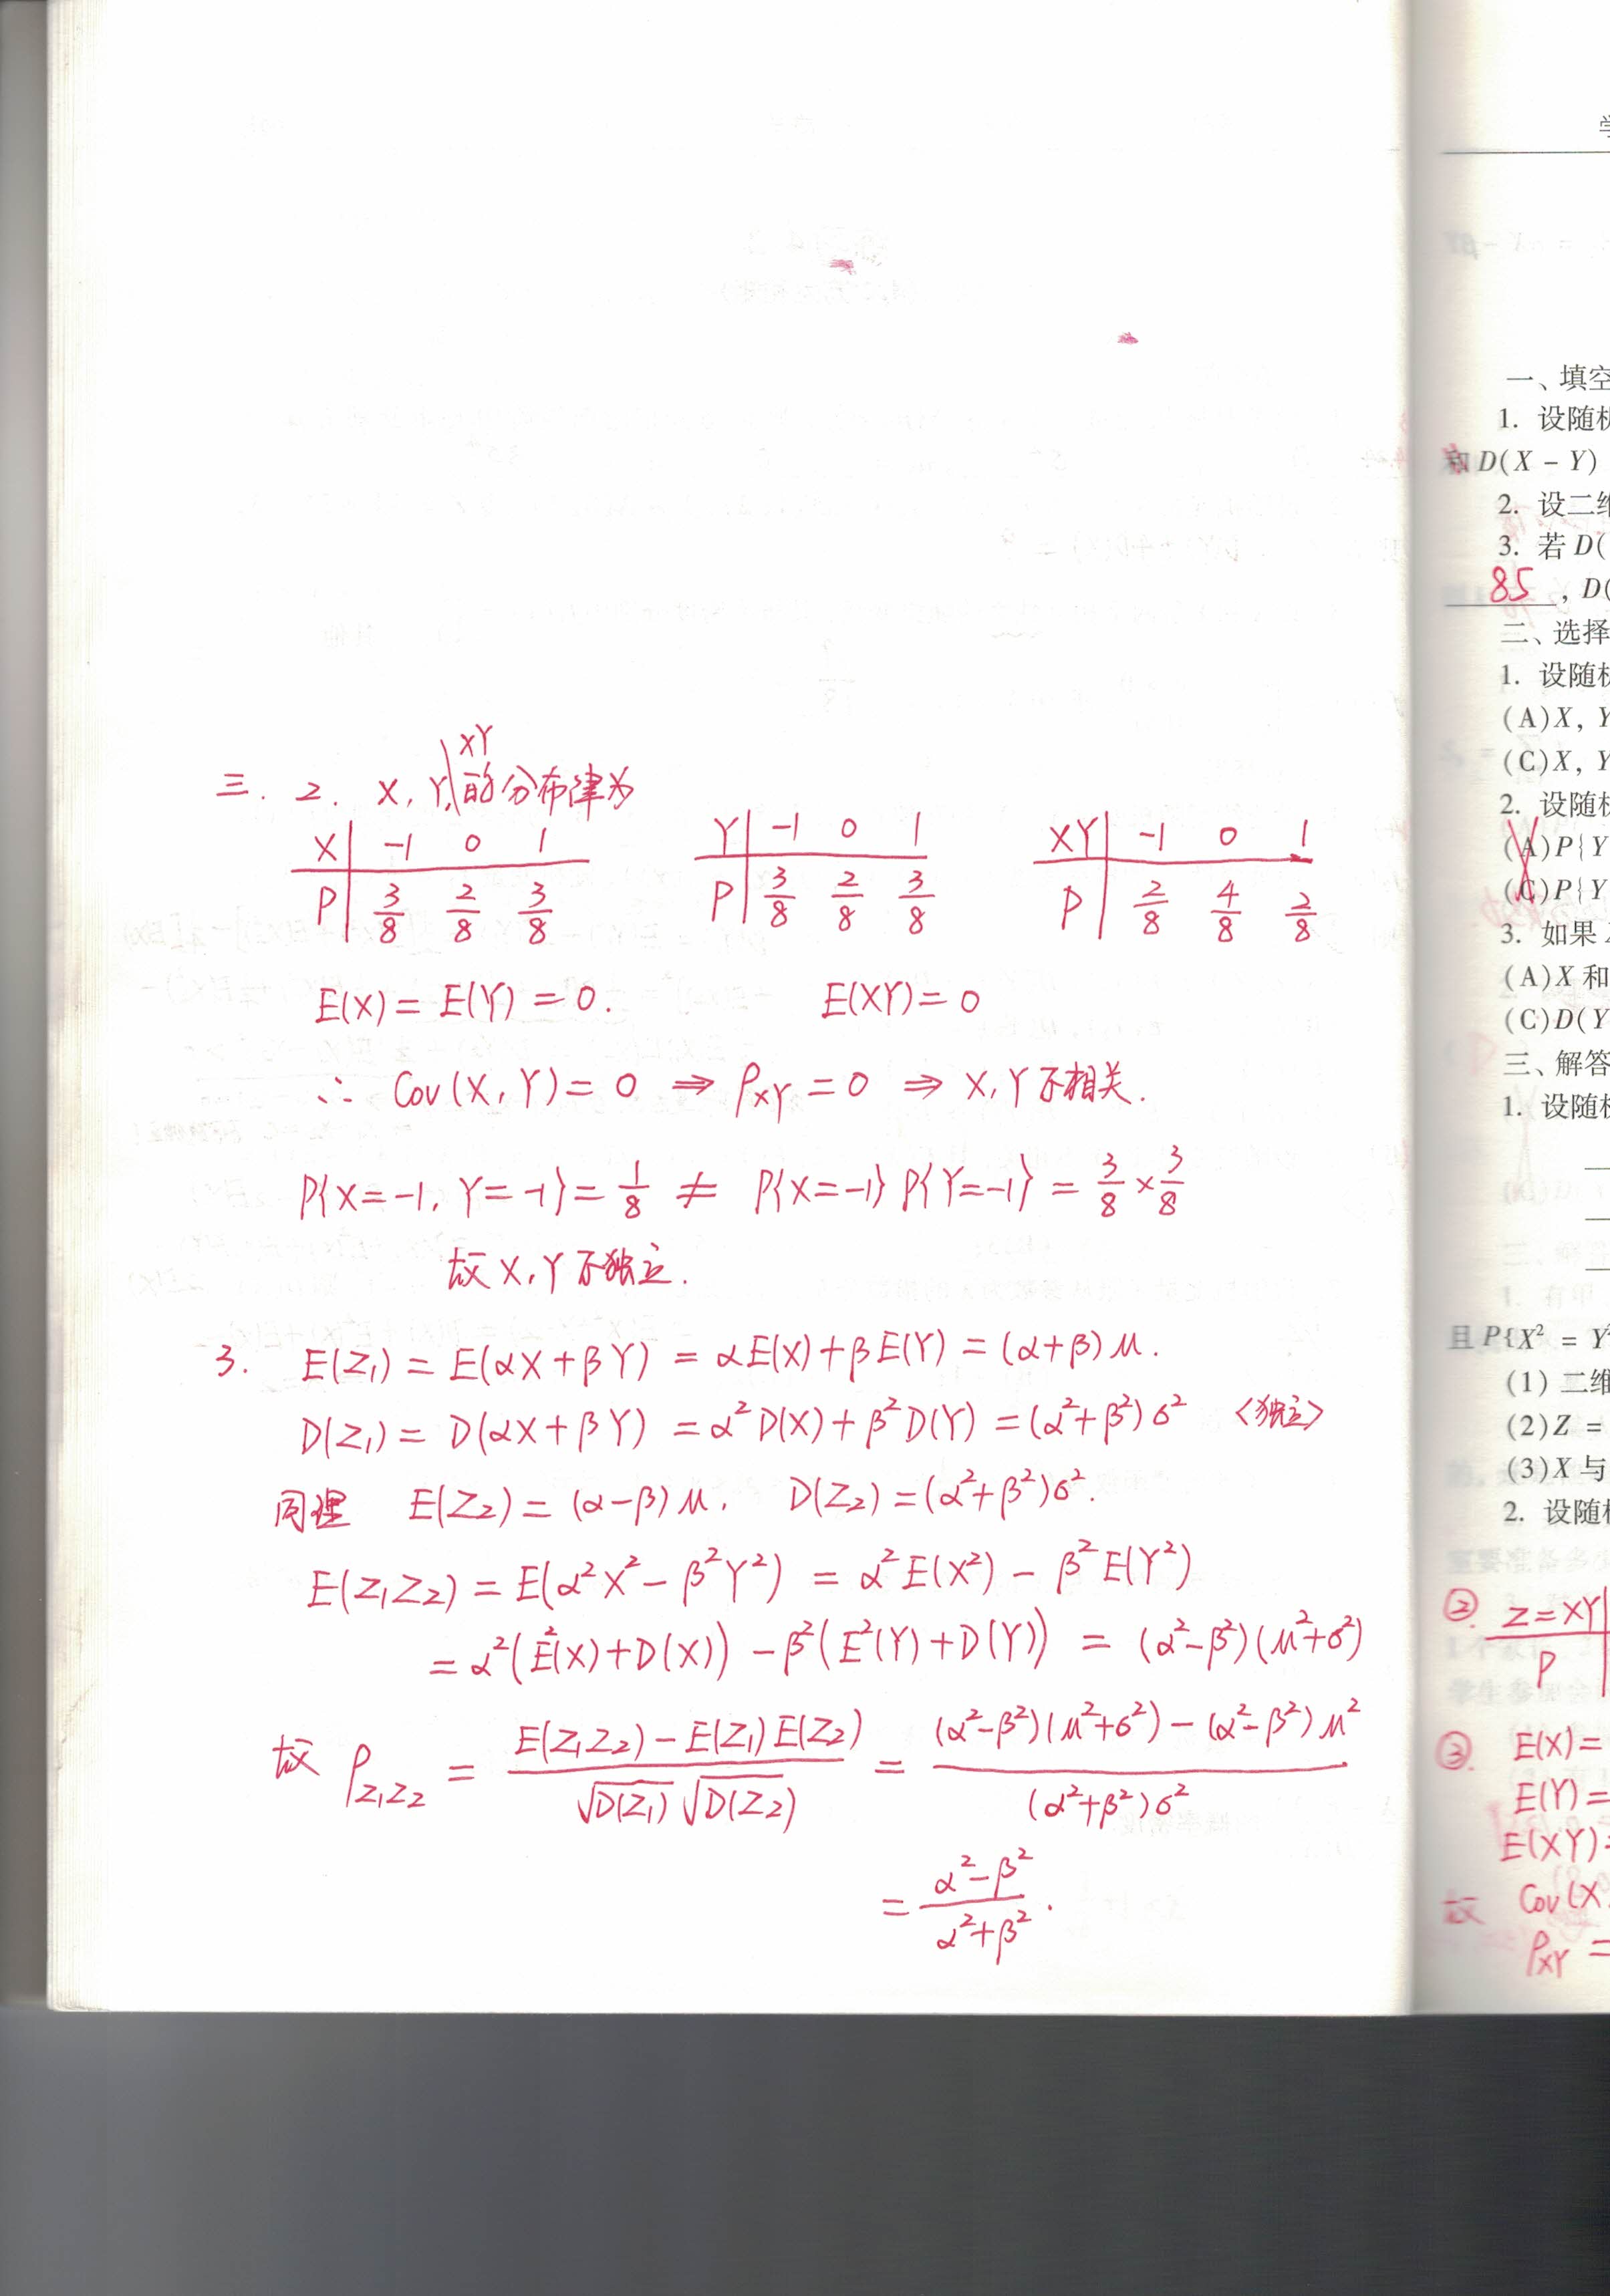 三. 2. X, Y, XY 的分布律为
X -1 0 1
P 3/8 2/8 3/8
Y -1 0 1
P 3/8 2/8 3/8
XY -1 0 1
P 2/8 4/8 2/8
E(X) = E(Y) = 0. E(XY) = 0
∴ Cov(X, Y) = 0 ⇒ ρXY = 0 ⇒ X, Y 不相关.
P{X=-1, Y=-1} = 1/8 ≠ P{X=-1} P{Y=-1} = 3/8 × 3/8
故 X, Y 不独立.
3. E(Z₁) = E(αX+βY) = αE(X)+βE(Y) = (α+β)μ.
D(Z₁) = D(αX+βY) = α²D(X)+β²D(Y) = (α²+β²)σ² <独立>
同理 E(Z₂) = (α-β)μ, D(Z₂) = (α²+β²)σ².
E(Z₁Z₂) = E(α²X²-β²Y²) = α²E(X²) - β²E(Y²)
= α²(E²(X)+D(X)) - β²(E²(Y)+D(Y)) = (α²-β²)(μ²+σ²)
故 ρZ₁Z₂ = (E(Z₁Z₂)-E(Z₁)E(Z₂))/(√D(Z₁) √D(Z₂)) = ((α²-β²)(μ²+σ²)-(α²-β²)μ²)/((α²+β²)σ²)
= (α²-β²)/(α²+β²).
学
一、填空
1. 设随机
和 D(X - Y)
2. 设二维
3. 若 D(
85, D(
二、选择
1. 设随机
(A)X, Y
(C)X, Y
2. 设随机
(A)P{Y
(C)P{Y
3. 如果
(A)X 和
(C)D(Y
三、解答
1. 设随机
且 P{X² = Y²
(1) 二维
(2)Z =
(3)X 与
2. 设随机
② Z=XY
P
③. E(X)=
E(Y)=
E(XY)=
故 Cov(X
ρXY =